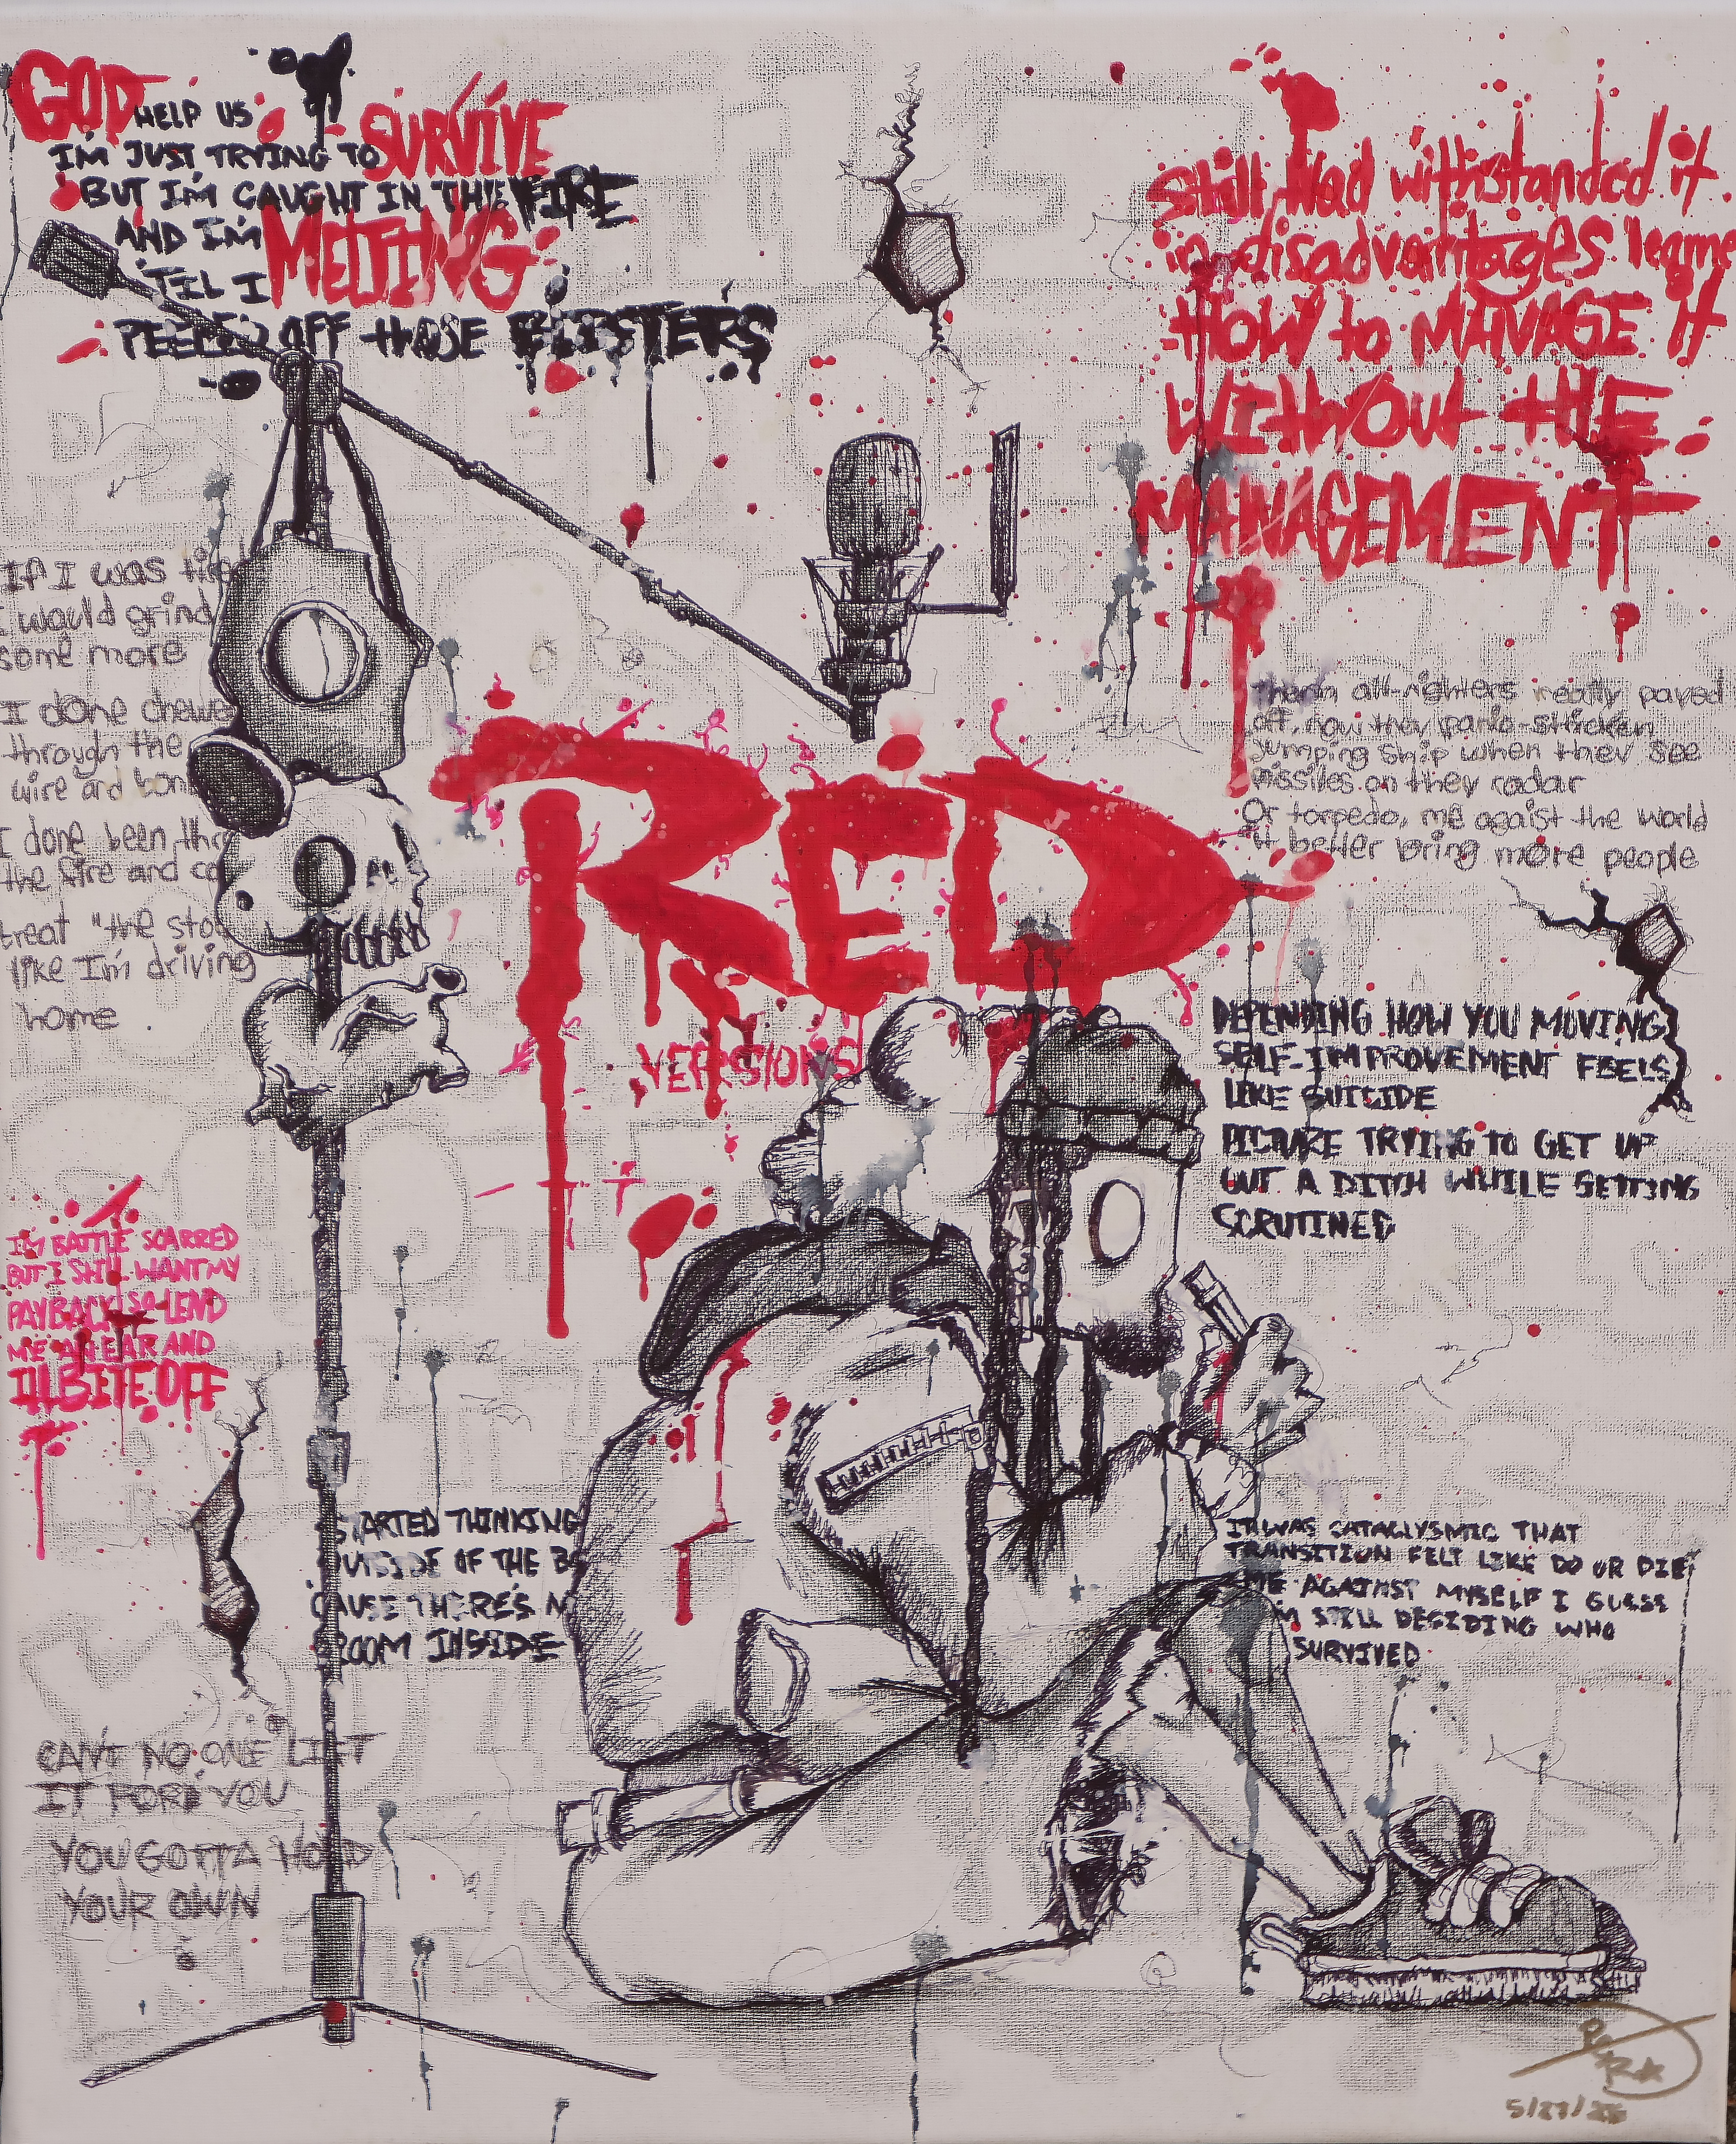 GOD HELP US
I'M JUST TRYING TO SURVIVE
BUT I'M CAUGHT IN THE FIRE
AND I'M MELTING
'TIL I
PEELED OFF those BLISTERS
Still Had withstanded it
in disadvantages learned
HOW to MANAGE It
WithOut tHE
MANAGEMENT
If I was
I would grind
some more
I done
through the
wire and
I done been
the fire and
treat "the
like I'm driving
home
RED
VERSIONS
them all-nighters really payed
off, now they panic-stricken
Jumping Ship when they see
missiles on they radar
Or torpedo, me agaist the world
it better bring more people
DEPENDING HOW YOU MOVING
SELF-IMPROVEMENT FEELS
LIKE SUICIDE
PICTURE TRYING TO GET UP
OUT A DITCH WHILE GETTING
SCRUTINED
I'M BATTLE SCARRED
BUT I STILL WANT MY
PAYBACK SO LEND
ME AN EAR AND
I'LL BITE OFF
STARTED THINKING
OUTSIDE OF THE
CAUSE THERE'S
ROOM INSIDE
IT WAS CATACLYSMIC THAT
TRANSITION FELT LIKE DO OR DIE
ME AGAINST MYSELF I GUESS
I'M STILL DECIDING WHO
SURVIVED
CAN'T NO ONE LIFT
IT FOR YOU
YOU GOTTA HOLD
YOUR OWN